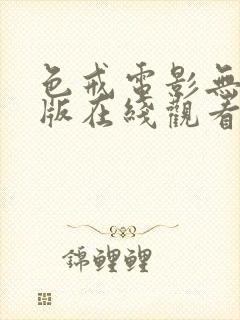 色戒電影無
版在綫觀看
錦鯉鯉